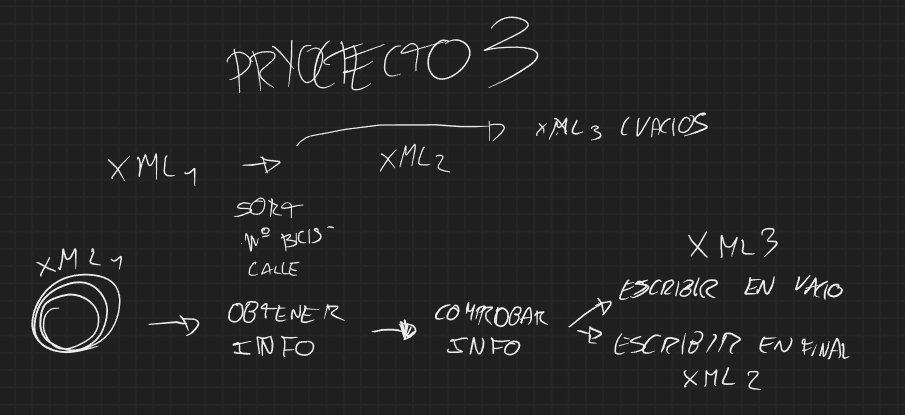 PRYOCTECTO 3
XML 1 → XML2 → XML 3 (VACIOS
SORT
Nº BICIS
CALLE
XML 1 → OBTENER INFO → COMPROBAR INFO
XML3
ESCRIBIR EN VACIO
ESCRIBIR EN FINAL
XML 2